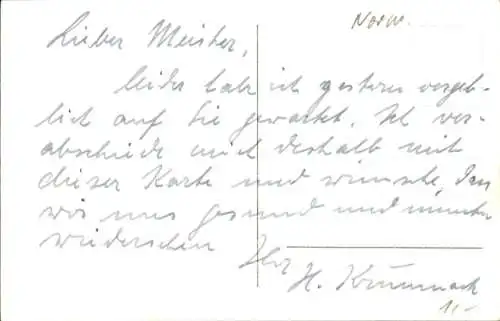 Norw.
Lieber Meister,
leider habe ich gestern vergeb-
lich auf Sie gewartet. Ich ver-
abschiede mich deshalb mit
dieser Karte und wünsche,
wir uns gesund und munter
wiedersehen
Ihr
H. Krummack
11.-